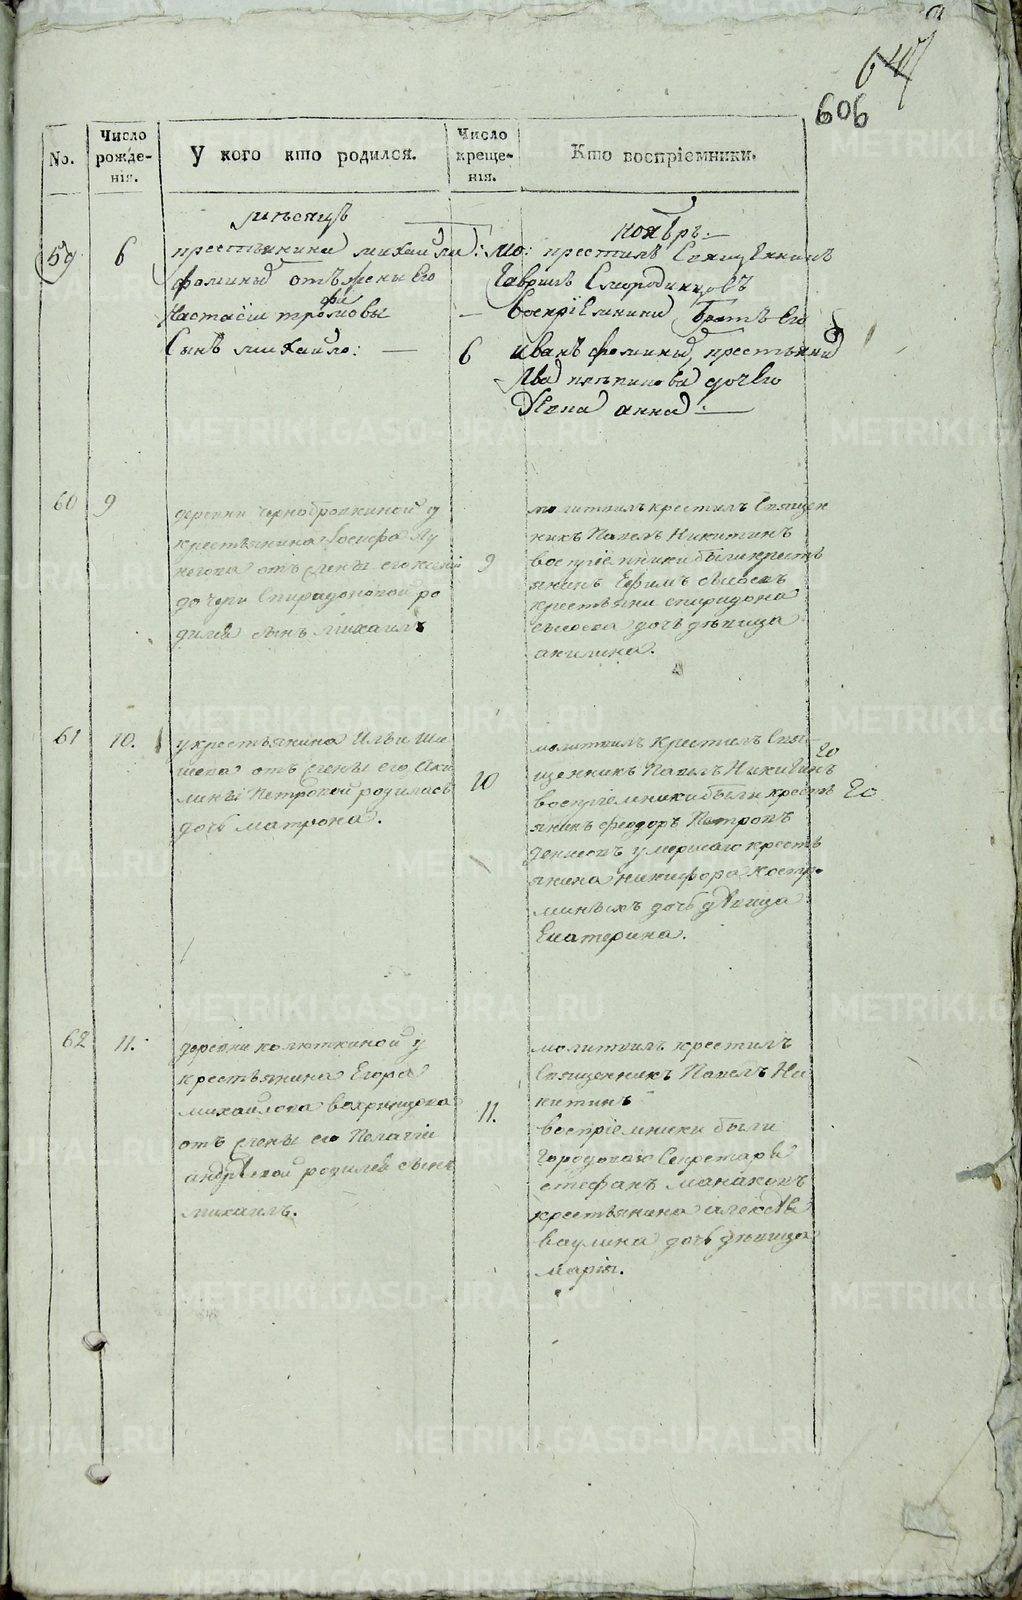 647
606
No.
Число рожде-нія.
У кого кто родился.
Число креще-нія.
Кто воспріемники.
мѣсяцъ
ноябрь:
59
6
крестьянина михаила:
фоминыхъ отъ жены Его
Настасіи трофимовы
Сынъ михаило:
6
мо: крестилъ Священникъ
Гаврилъ Смородинцовъ
воспріемники братъ Его
иванъ фоминыхъ, крестьянина
дочь Его
анна:
60
9
деревни чернобровкиной у
крестьянина Іосифа
отъ жены его
дочери Спиридоновой ро
дился сынъ михаилъ
9
молитвилъ крестилъ Священ
никъ Павелъ Никитинъ
воспріемники были кресть
янинъ Ефимъ сысоевъ
крестьяни спиридона
сысоева дочь дѣвица
акилина.
61
10.
у крестьянина Ильи Ши
шева отъ жены его Аки
лины Петровой родилась
дочь матрона.
10
молитвилъ крестилъ Свя-
щенникъ Павелъ Никитинъ
воспріемники были кресть
янинъ феодоръ Петровъ
умершаго кресть
янина никифора костро
миныхъ дочь дѣвица
Екатерина.
20
20
62
11.
деревни колюткиной у
крестьянина Егора
михайлова вахрамцова
отъ жены его Пелагіи
андрѣевой родился сынъ
михаилъ.
11.
молитвилъ крестилъ
Священникъ Павелъ Ни
китинъ
воспріемники были
Городоваго Секретаря
стефанъ манаковъ
крестьянина алексѣя
ваулина дочь дѣвица
марія.
METRIKI.GASO-URAL.RU